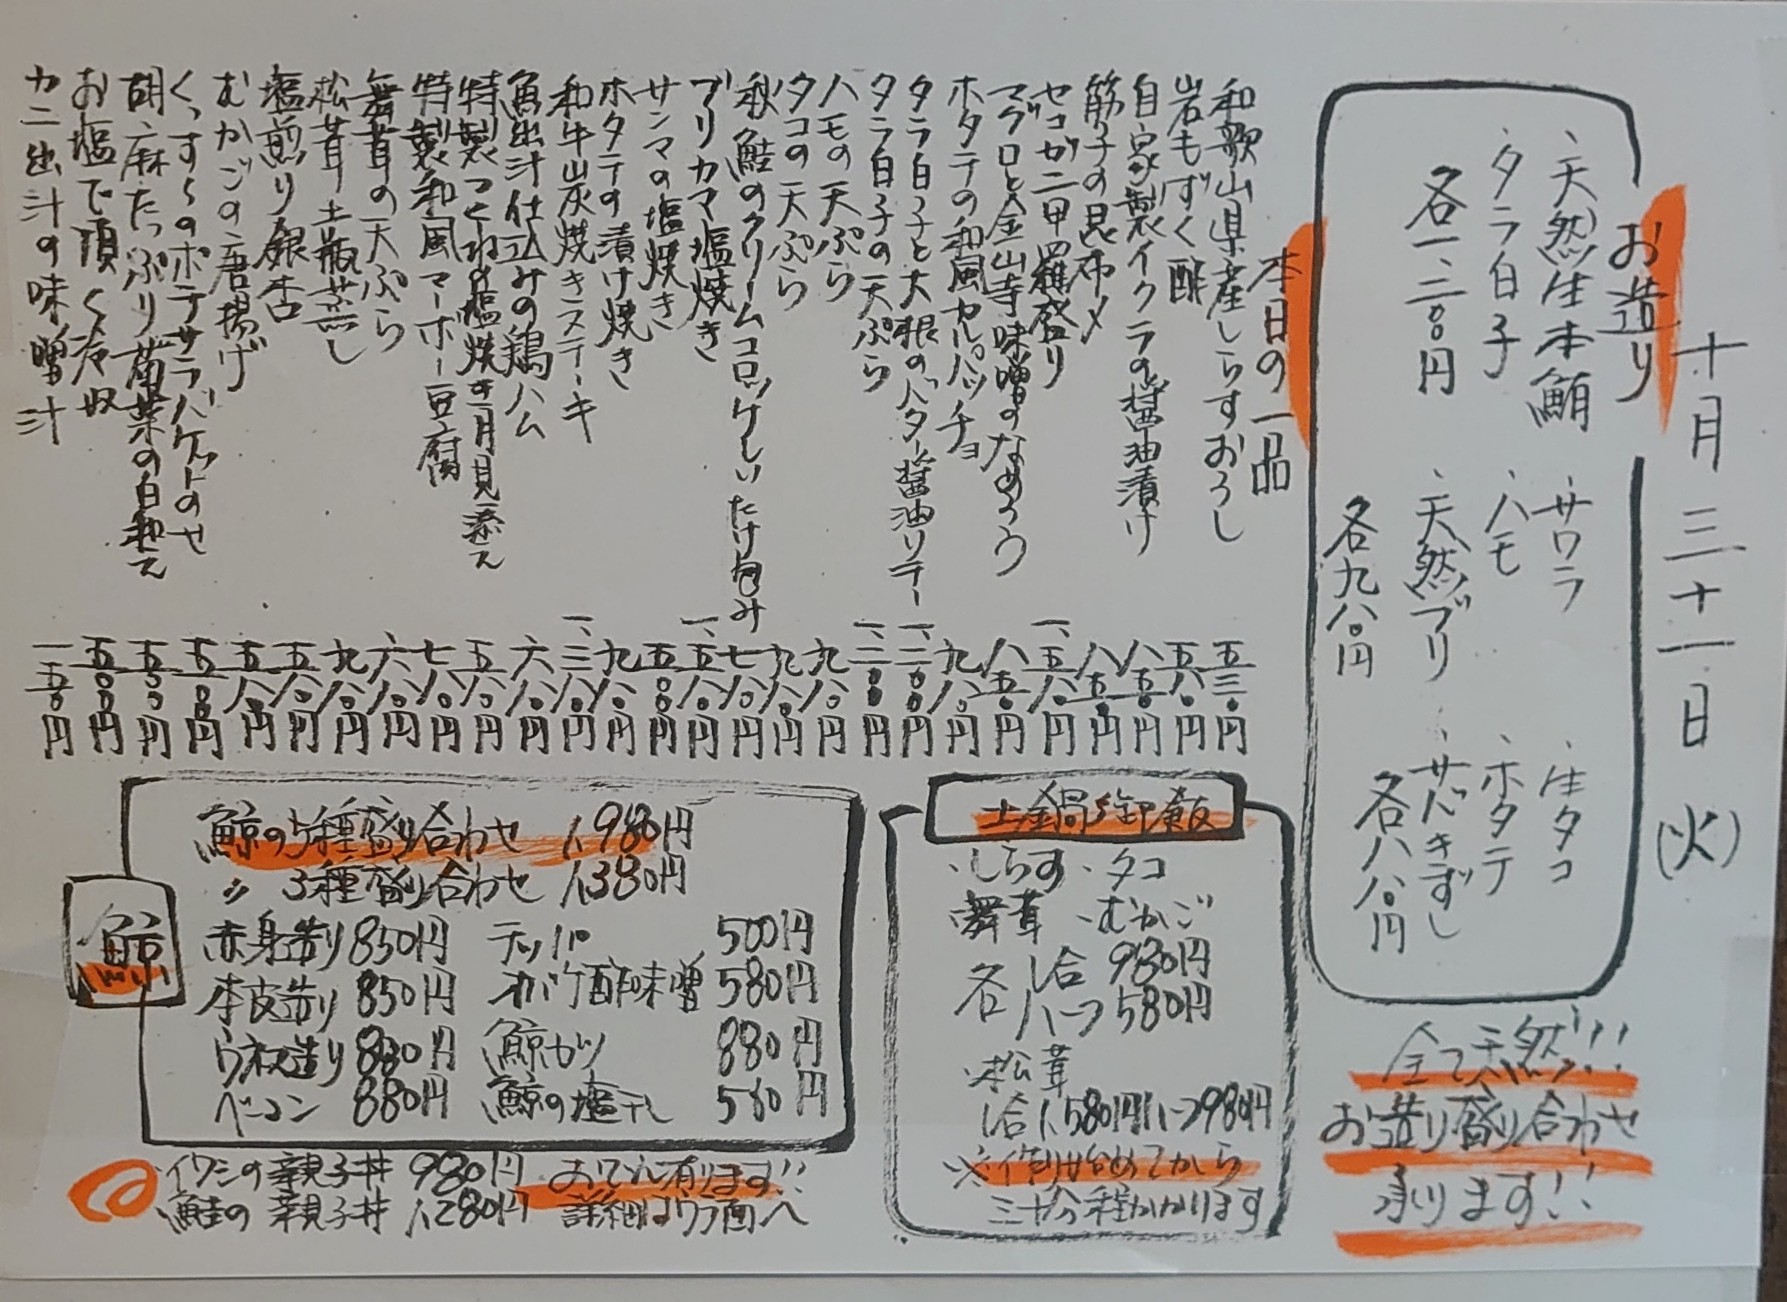 十月三十一日(火)
お造り
、天然生本鮪 、サワラ 、生タコ
、タラ白子 、ハモ 、ホタテ
各一、二八〇円 、天然ブリ 、サバきずし
各九八〇円 各八八〇円
全て天然!!
お造り盛り合わせ
承ります!!
本日の一品
和歌山県産しらすおろし 五三〇円
岩もずく酢 五八〇円
自家製イクラの醤油漬け 八五〇円
筋子の昆布〆 八五〇円
セコガニ甲羅盛り 一、五八〇円
マグロと金山寺味噌のなめろう 八五〇円
ホタテの和風カルパッチョ 九八〇円
タラ白子と大根のバター醤油ソテー 一、二〇〇円
タラ白子の天ぷら 一、二〇〇円
ハモの天ぷら 九八〇円
タコの天ぷら 九八〇円
秋鮭のクリームコロッケしいたけ包み 七八〇円
ブリカマ塩焼き 一、五八〇円
サンマの塩焼き 五〇〇円
ホタテの漬け焼き 九八〇円
和牛炭焼きステーキ 一、三八〇円
魚出汁仕込みの鶏ハム 六八〇円
特製つくねの塩焼き月見添え 五八〇円
特製和風マーボー豆腐 七八〇円
舞茸の天ぷら 六八〇円
松茸土瓶蒸し 九八〇円
塩煎り銀杏 五八〇円
むかごの唐揚げ 五八〇円
くっすぅのポテサラバケットのせ 五五〇円
胡麻たっぷり菊菜の白和え 五五〇円
お塩で頂く冷奴 五〇〇円
カニ出汁の味噌汁 一五〇円
土鍋御飯
・しらす ・タコ
・舞茸 ・むかご
各 1合 980円
ハーフ 580円
・松茸
1合1,580円ハーフ980円
※作り始めてから
三十分程かかります
鯨
鯨の5種盛り合わせ 1,980円
〃 3種盛り合わせ 1,380円
赤身造り 850円 テッパ 500円
本皮造り 850円 オバケ酢味噌 580円
ウネ造り 880円 鯨カツ 880円
ベーコン 880円 鯨の塩干し 580円
イワシの親子丼 980円 おでん有ります!!
鮭の親子丼 1,280円 詳細はウラ面へ